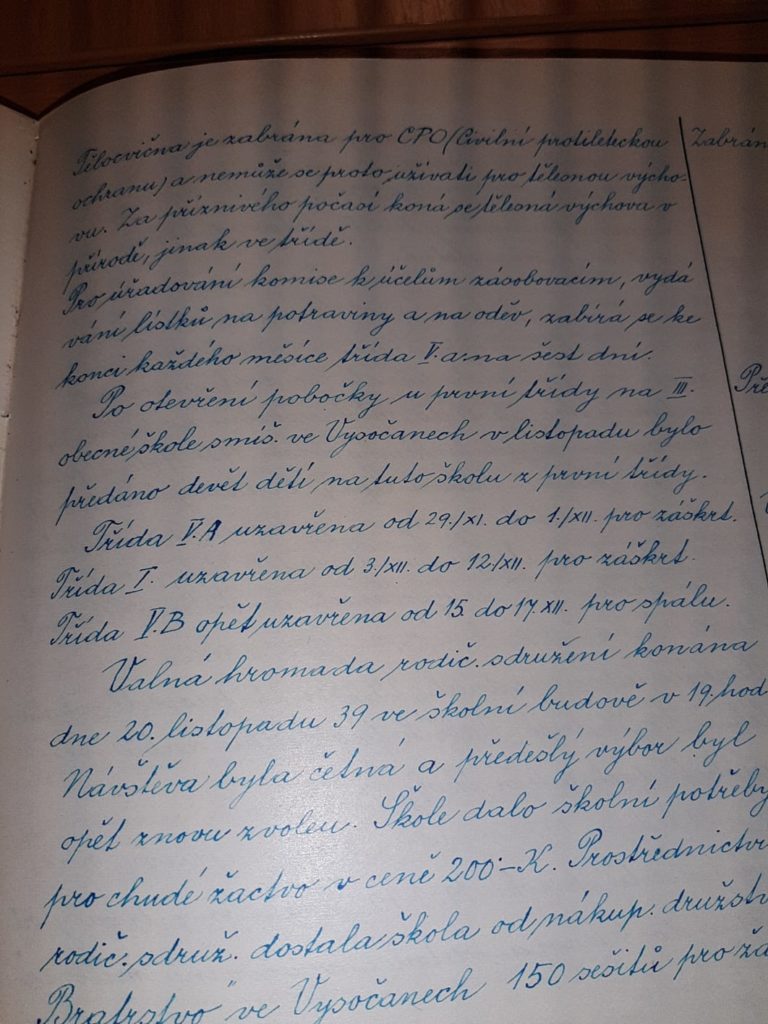 Tělocvična je zabrána pro CPO (Civilní protileteckou
ochranu) a nemůže se proto užívati pro tělesnou výcho-
vu. Za příznivého počasí koná se tělesná výchova v
přírodě, jinak ve třídě.
Pro úřadování komise k účelům zásobovacím, vydá
vání lístků na potraviny a na oděv, zabírá se ke
konci každého měsíce třída V.a. na šest dní.
Po otevření pobočky u první třídy na III.
obecné škole smíš. ve Vysočanech v listopadu bylo
předáno devět dětí na tuto školu z první třídy.
Třída V.A uzavřena od 29./XI. do 1./XII. pro záškrt.
Třída I. uzavřena od 3./XII. do 12./XII. pro záškrt.
Třída V.B opět uzavřena od 15. do 17. XII. pro spálu.
Valná hromada rodič. sdružení konána
dne 20. listopadu 39 ve školní budově v 19. hod
Návštěva byla četná a předešlý výbor byl
opět znovu zvolen. Škole dalo školní potřeby
pro chudé žactvo v ceně 200·-K. Prostřednictv
rodič. sdruž. dostala škola od nákup. družstv
Bratrstvo" ve Vysočanech 150 sešitů pro
Zabrán
Pře